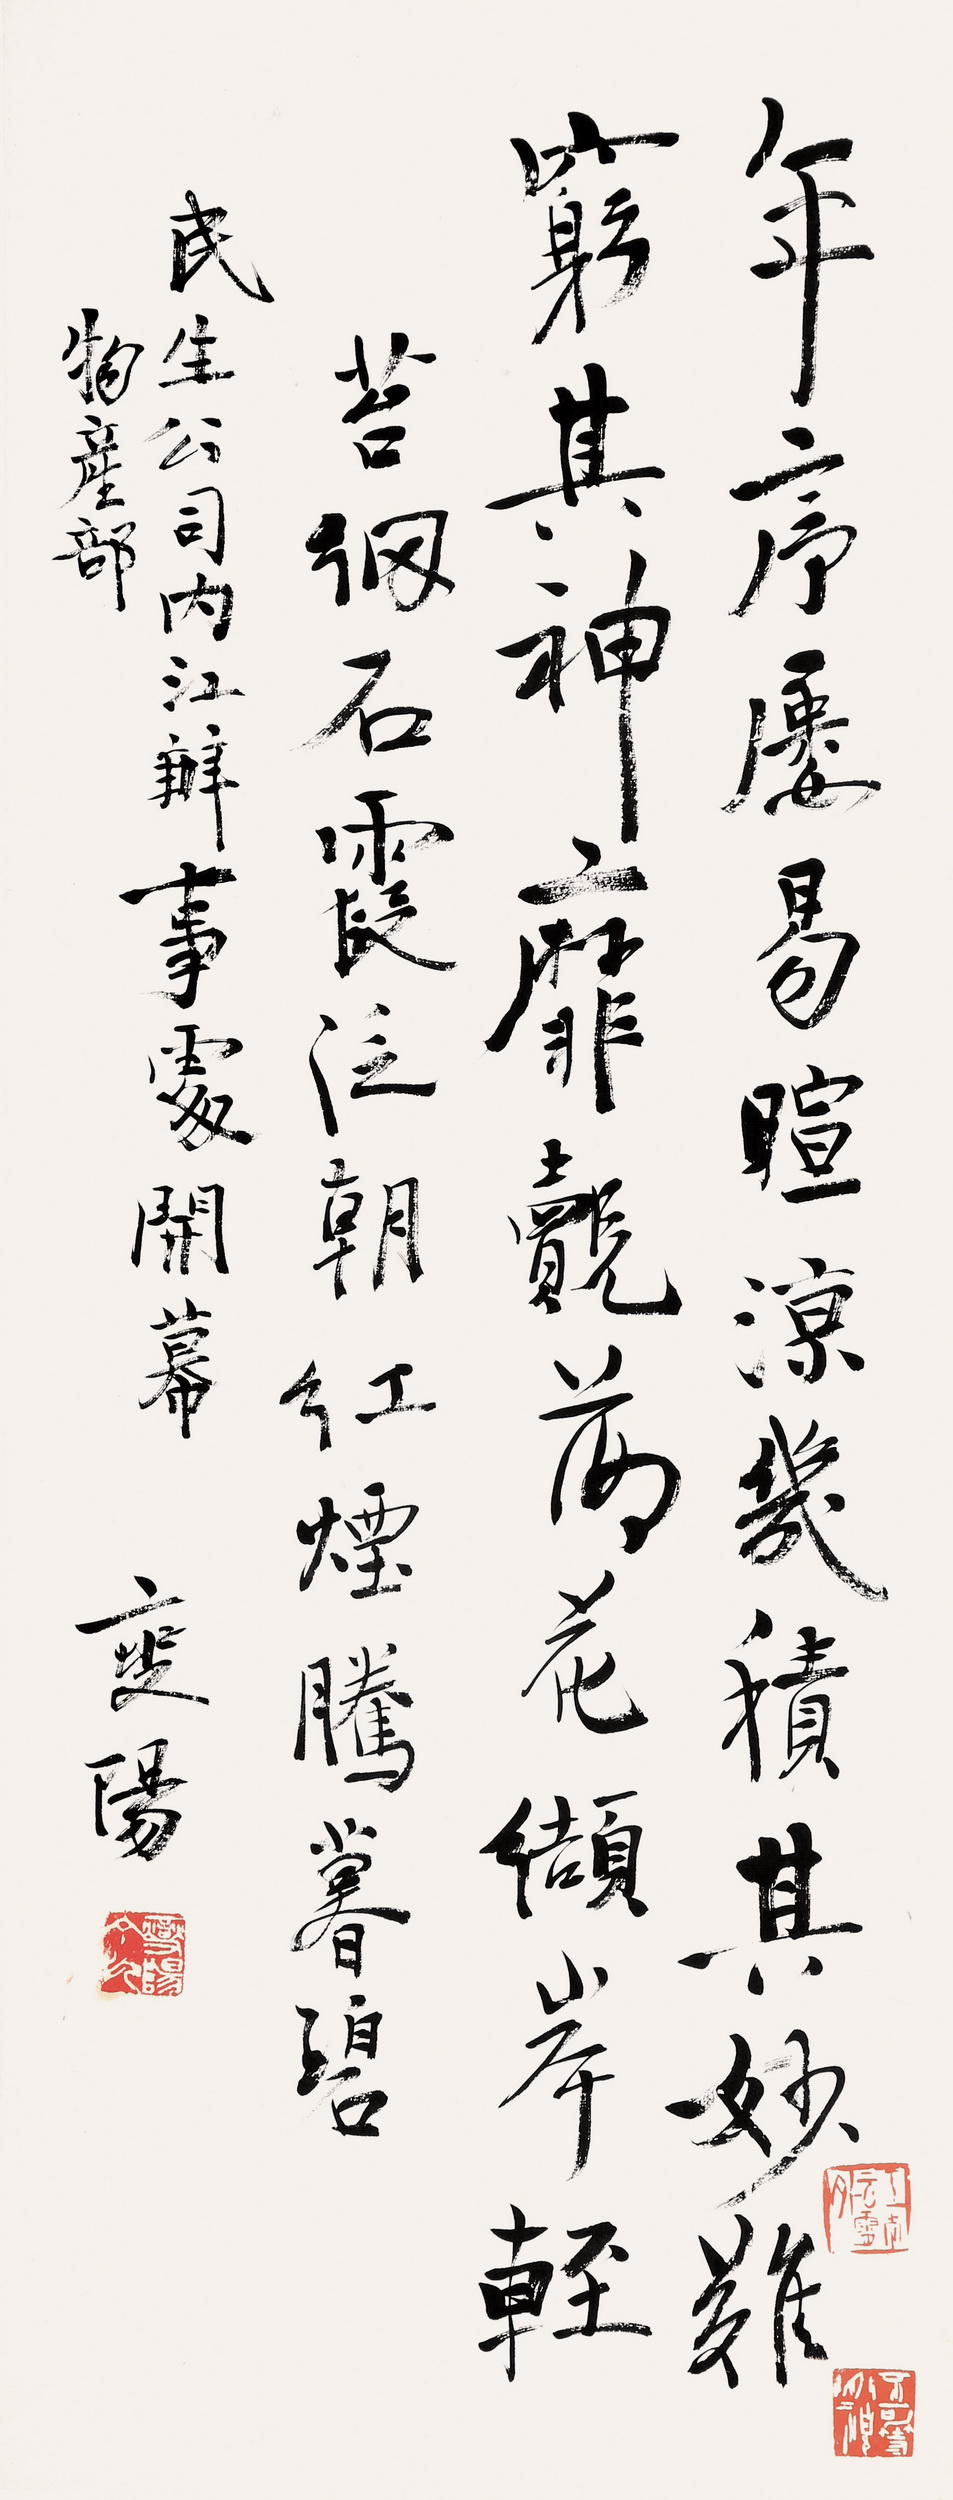 年序屢易暄涼幾積其妙難
窮其神靡覿落花纈岸輕
苔網石霞泛朝紅煙騰暮碧
民生公司內江辦事處開幕
物產部
奭陽